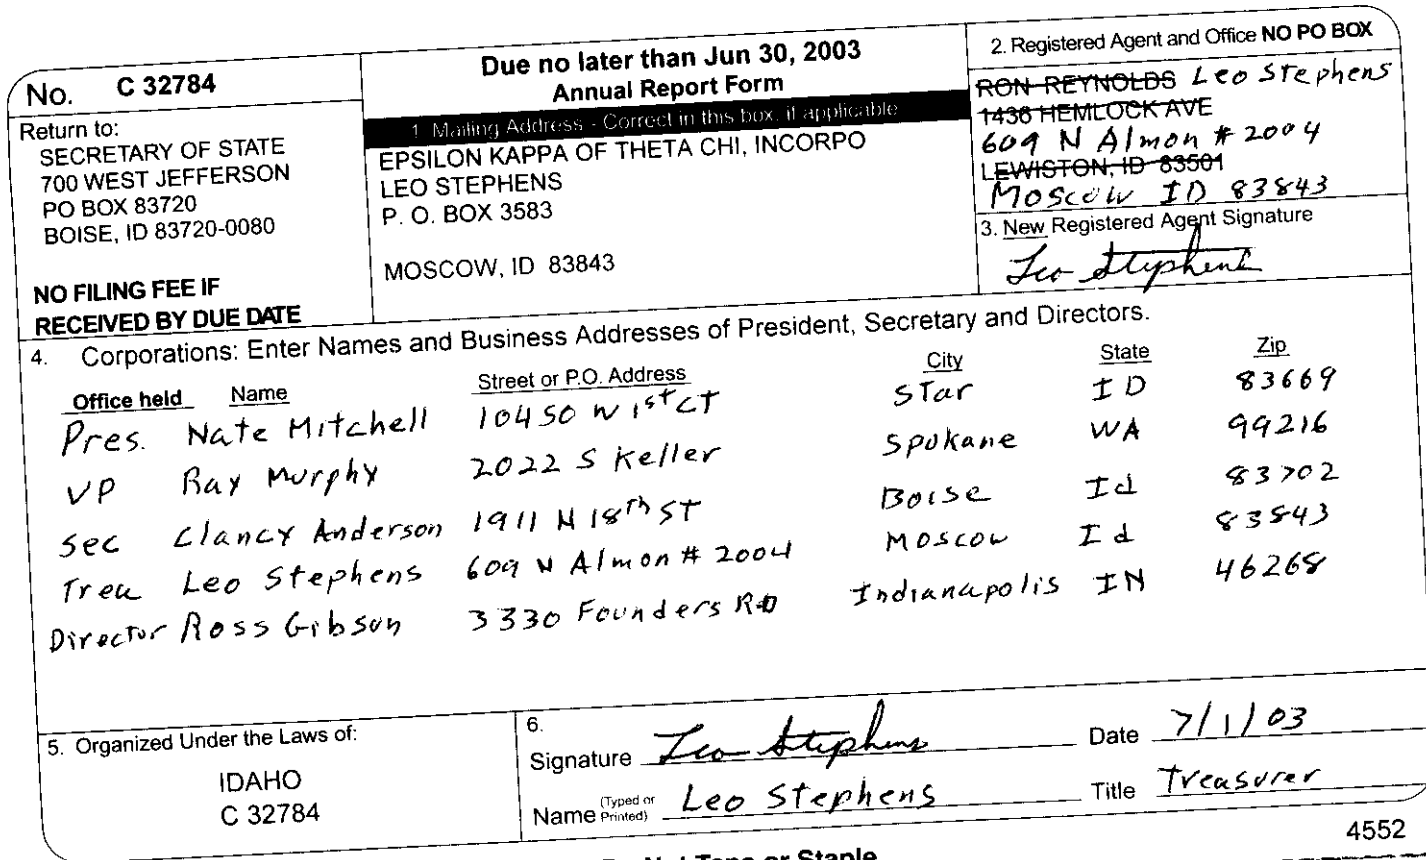 No. C 32784
Return to:
SECRETARY OF STATE
700 WEST JEFFERSON
PO BOX 83720
BOISE, ID 83720-0080
NO FILING FEE IF
RECEIVED BY DUE DATE
Due no later than Jun 30, 2003
Annual Report Form
1. Mailing Address - Correct in this box, if applicable
EPSILON KAPPA OF THETA CHI, INCORPO
LEO STEPHENS
P. O. BOX 3583
MOSCOW, ID 83843
2. Registered Agent and Office NO PO BOX
RON REYNOLDS Leo Stephens
1436 HEMLOCK AVE
609 N Almon # 2004
LEWISTON, ID 83501
Moscow ID 83843
3. New Registered Agent Signature
Leo Stephens
4. Corporations: Enter Names and Business Addresses of President, Secretary and Directors.
Office held Name Street or P.O. Address City State Zip
Pres. Nate Mitchell 10450 W 1st CT Star ID 83669
VP Ray Murphy 2022 S Keller Spokane WA 99216
Sec Clancy Anderson 1911 N 18th ST Boise Id 83702
Treu Leo Stephens 609 N Almon # 2004 Moscow Id 83843
Director Ross Gibson 3330 Founders RD Indianapolis IN 46268
5. Organized Under the Laws of:
IDAHO
C 32784
6.
Signature Leo Stephens Date 7/1/03
Name (Typed or Printed) Leo Stephens Title Treasurer
4552
Do Not Tape or Staple